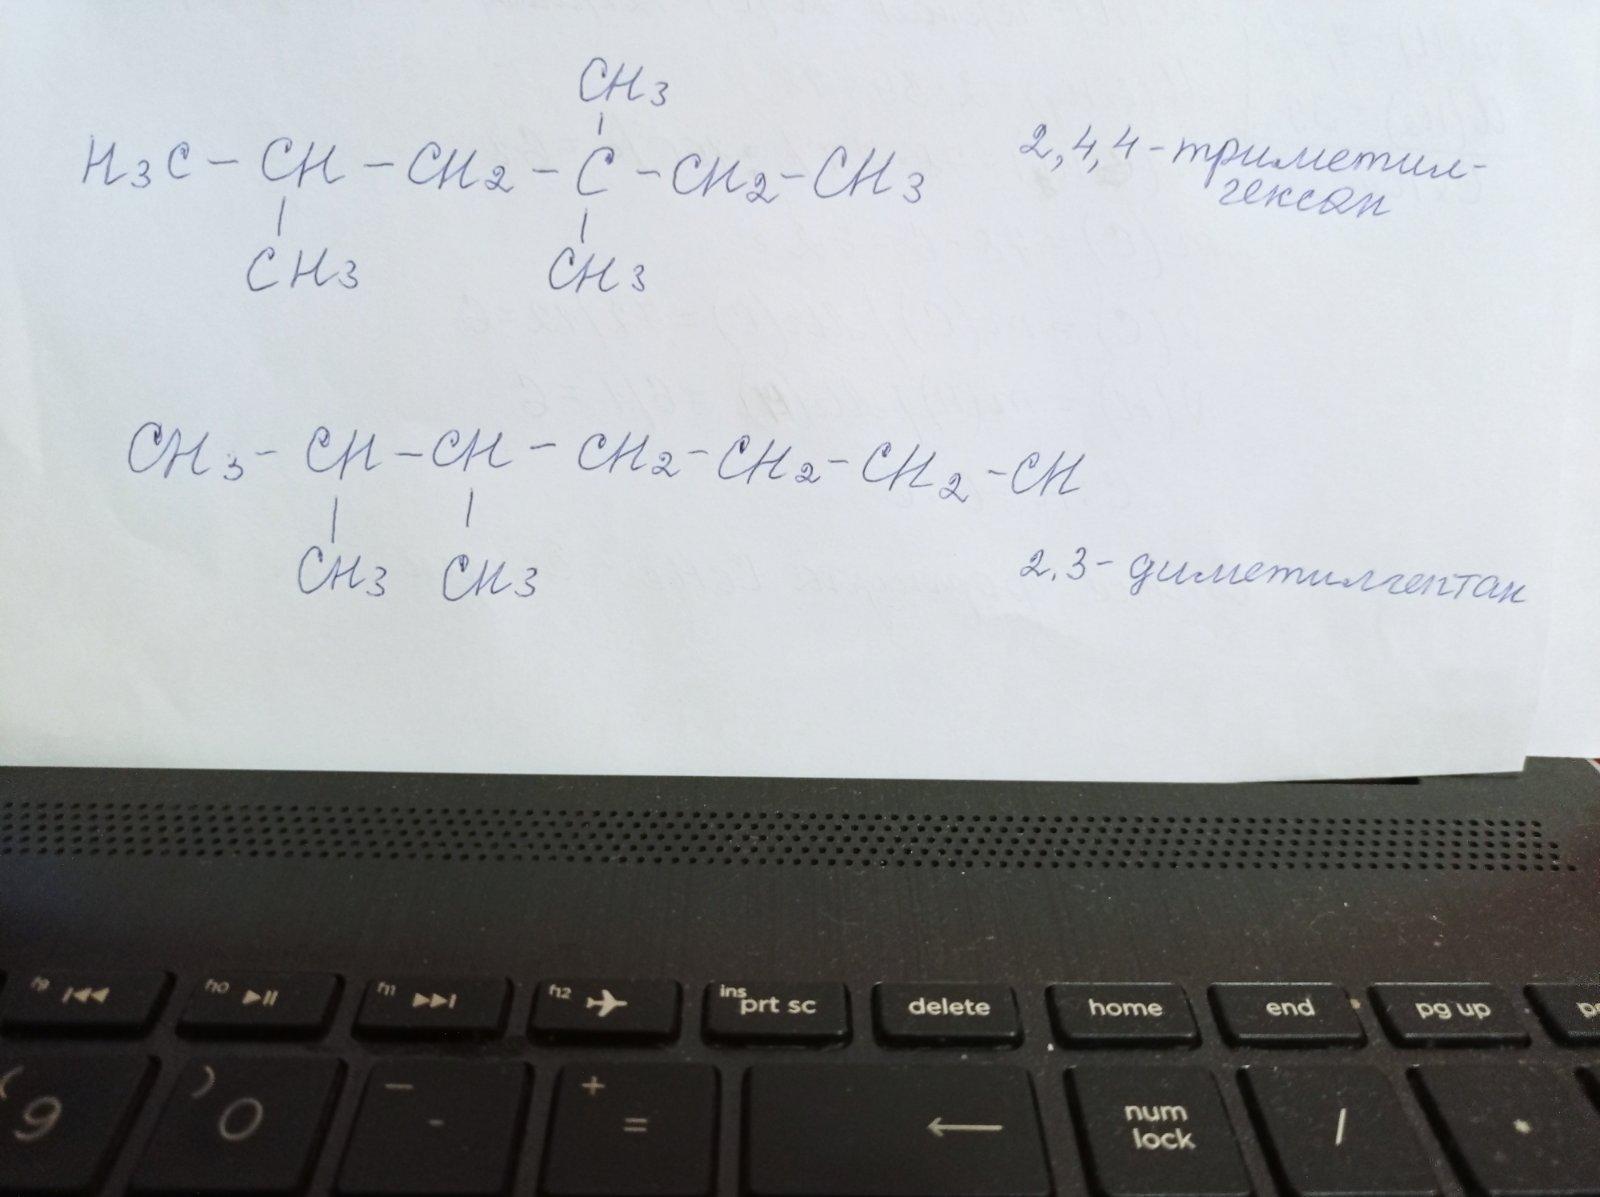 CH3
H3C - CH - CH2 - C - CH2 - CH3
CH3 CH3
2,4,4-триметил-
гексан
CH3 - CH - CH - CH2 - CH2 - CH2 - CH
CH3 CH3
2,3- диметилгептан
f9 f10 f11 f12 ins prt sc delete home end pg up
( 9 ) 0 — - + = num lock / *